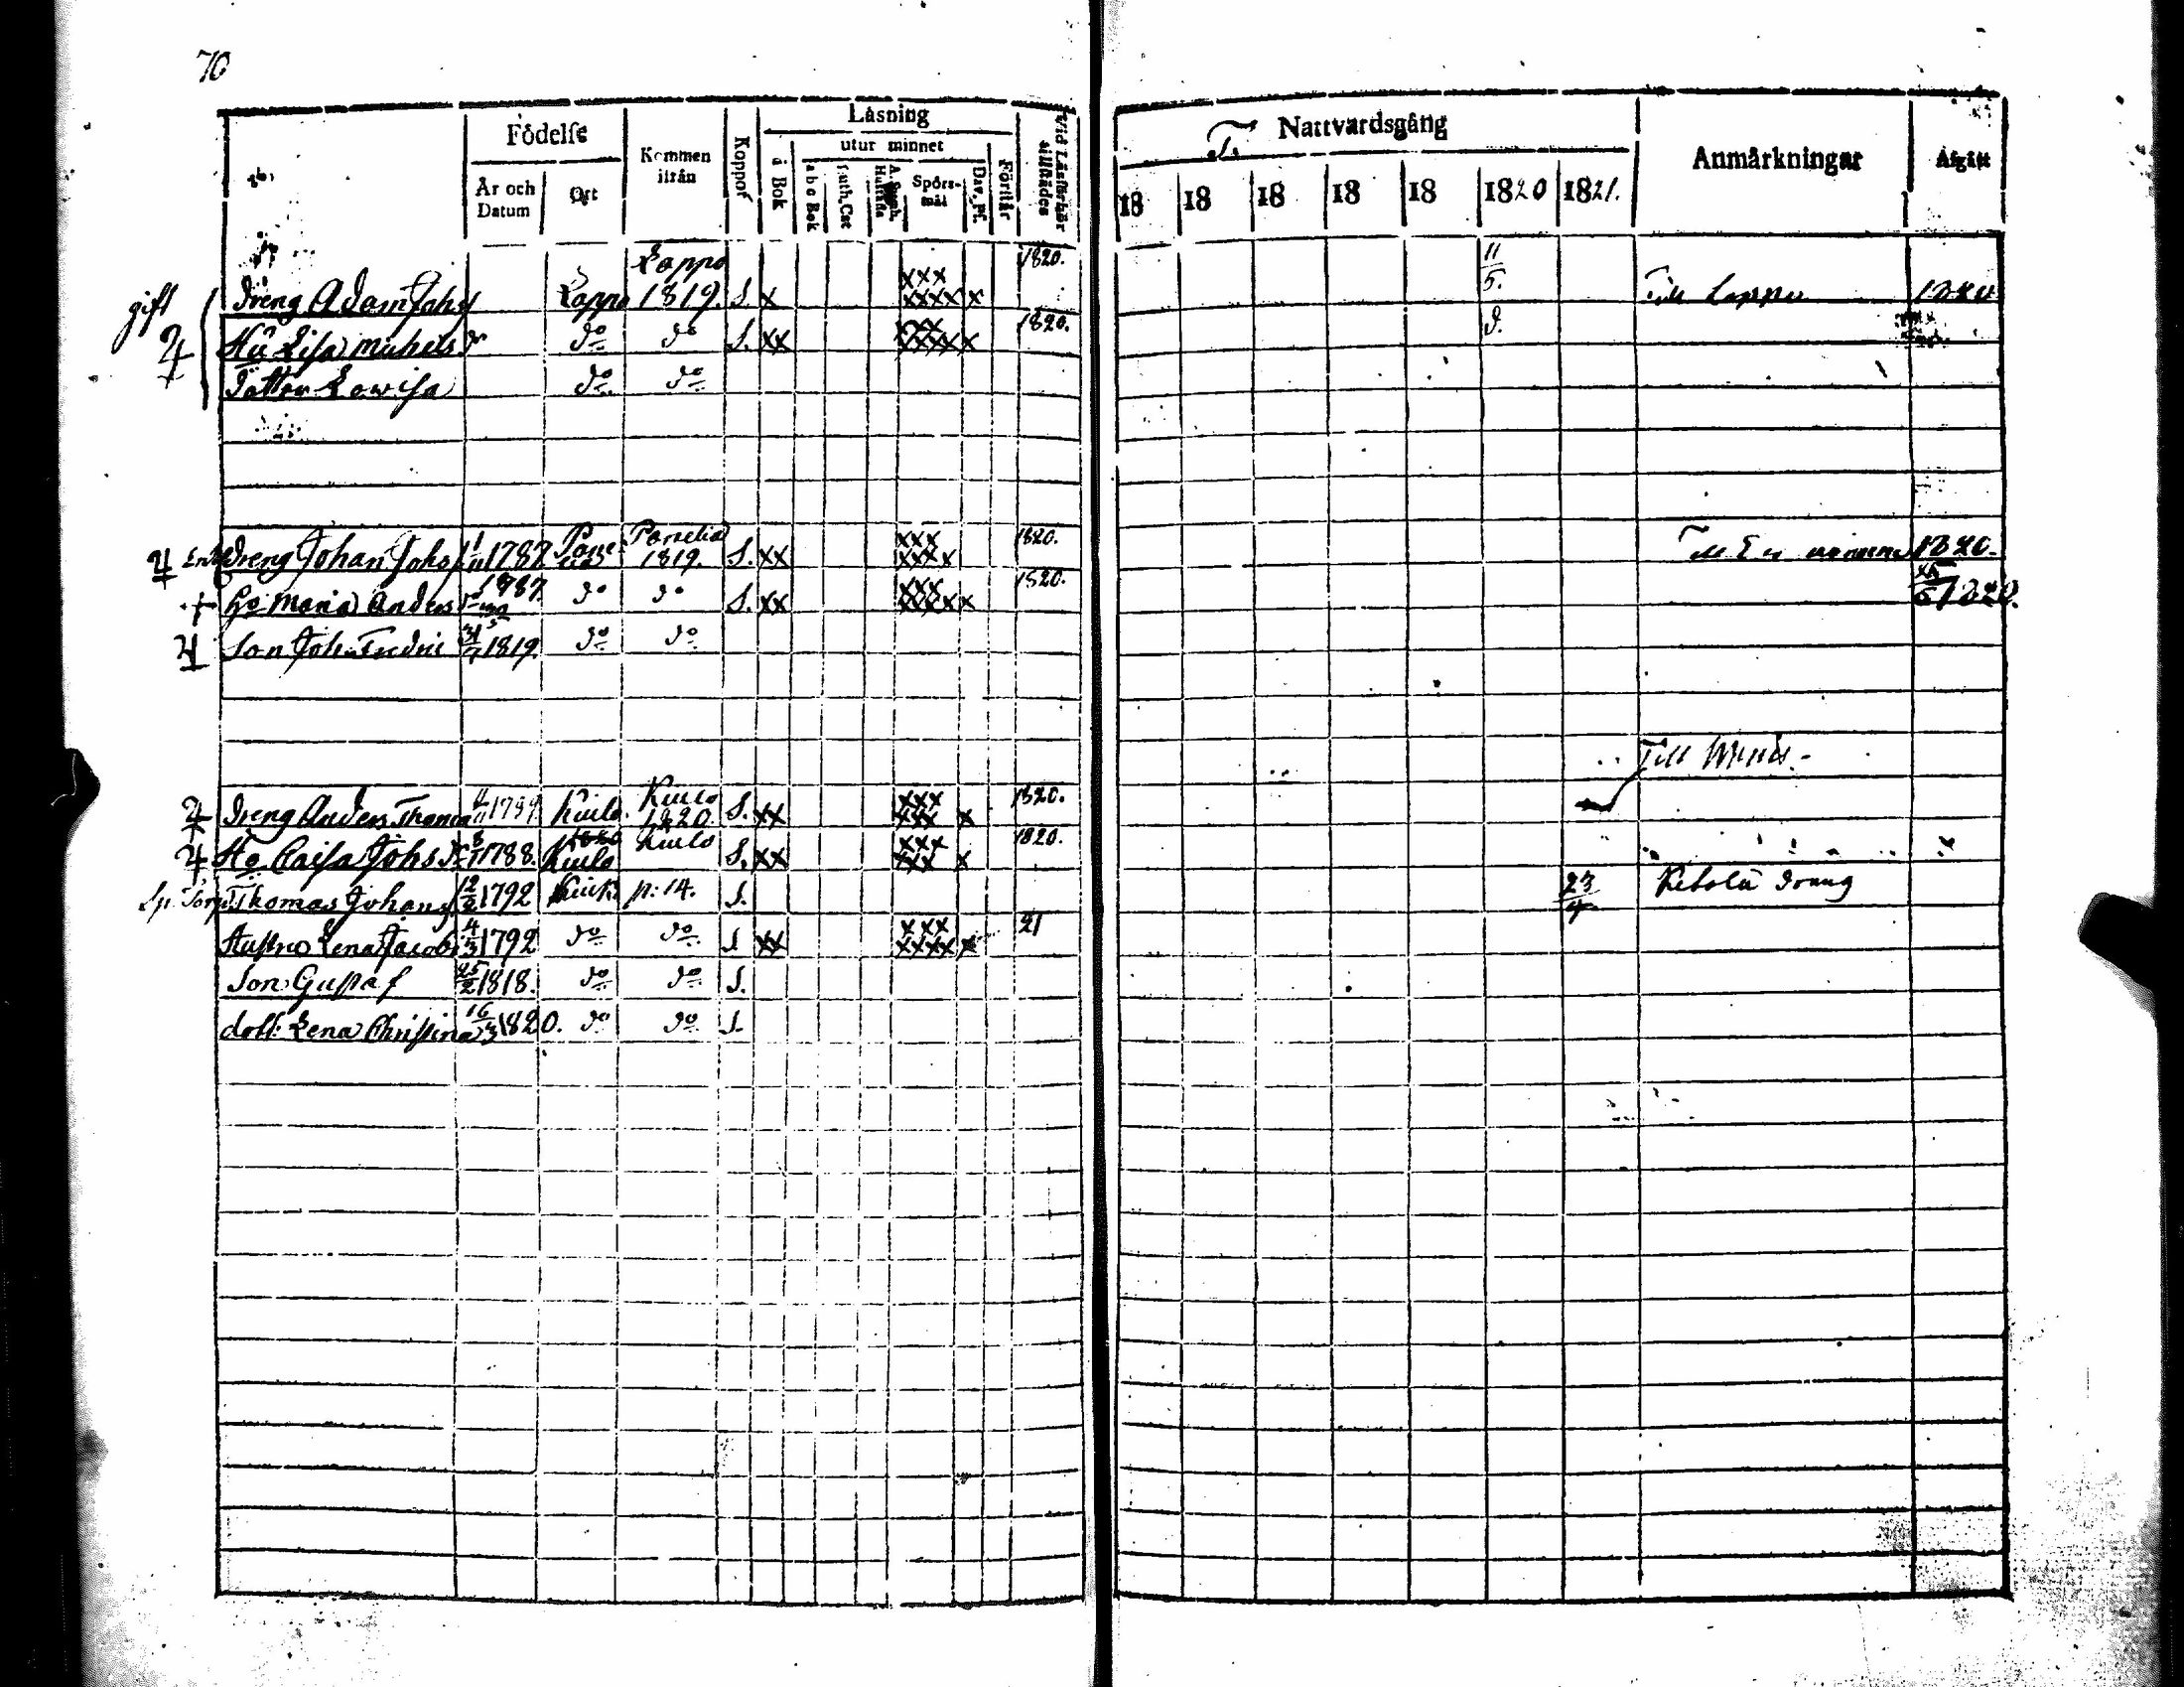 70
Födelse Kommen ifrån Koppor Läsning Vid Läsförhör tillstädes Nattvardsgång Anmärkningar Afgått
År och Datum Ort i Bok utur minnet Förstår
a b c Bok Luth. Cat A. Symb. Hustafla Spörsmål Dav. Ps.
18 18 18 18 18 1820 1821.
Lappo 1820. 11/5.
gift Dreng Adam Johs Lappo 1819. S. x xxx xxxx x Till Lappo 1820
Hu Lisa Michels dr do do S. xx xxx xxxx x 1820. d.
Dotter Lowisa do do
Enkl Dreng Johan Johs 1/11 1787 Pane lia Panelia 1819. S. xx xxx xxxx 1820. 1820.
Ho Maria Anders 1787 do do S. xx xxx xxxx x 1820. 1820.
Son Joh. Fredric 31/7 1819 do do
Till
Dreng Anders Thoma 1799. Kiulo. Kiulo 1820 S. xx xxx xxx x 1820.
Ho Caisa Johs dr 8/1 1788. Kiulo Kiulo S. xx xxx xxx x 1820.
Sp. Torp. Thomas Johans 12/2 1792 Kiulo p: 14. S. 23/4 dräng
Hustru Lena Jacobs 4/3 1792 do do S xx xxx xxxx x 21
Son Gustaf 25/2 1818. do do S.
dott: Lena Christina 16/3 1820. do do S.